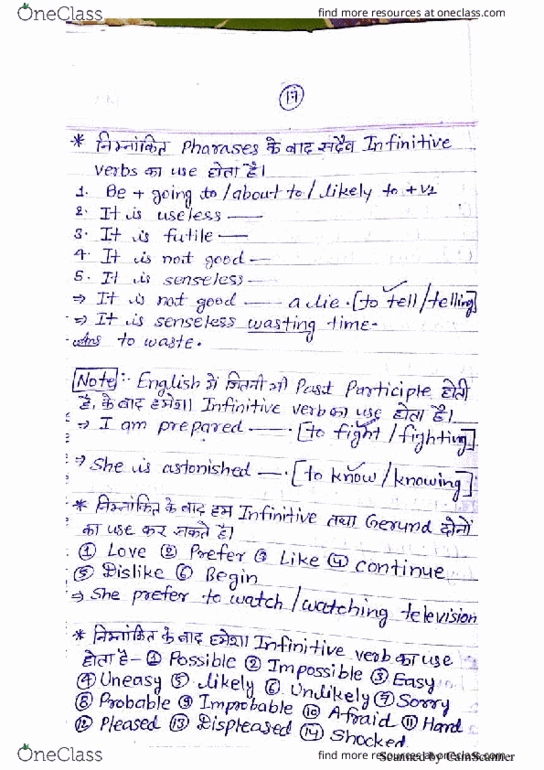 OneClass
find more resources at oneclass.com
17
* निम्नांकित Pharases के बाद सदैव Infinitive
verbs का use होता है।
1. Be + going to / about to / likely to + V1
2. It is useless —
3. It is futile —
4. It is not good —
5. It is senseless —
⇒ It is not good — a lie. [to tell / telling]
⇒ It is senseless wasting time.
to waste.
Note :- English में जितनी भी Past Participle होती
है, के बाद हमेशा Infinitive verb का use होता है।
⇒ I am prepared —. [to fight / fighting]
⇒ She is astonished —. [to know / knowing]
* निम्नांकित के बाद हम Infinitive तथा Gerund दोनों
का use कर सकते है।
① Love ② Prefer ③ Like ④ continue
⑤ Dislike ⑥ Begin
⇒ She prefer to watch / watching television
* निम्नांकित के बाद हमेशा Infinitive verb का use
होता है- ① Possible ② Impossible ③ Easy
④ Uneasy ⑤ likely ⑥ Unlikely ⑦ Sorry
⑧ Probable ⑨ Improbable ⑩ Afraid ⑪ Hard
⑫ Pleased ⑬ Displeased ⑭ Shocked.
OneClass
find more resources at oneclass.com
Scanned by CamScanner